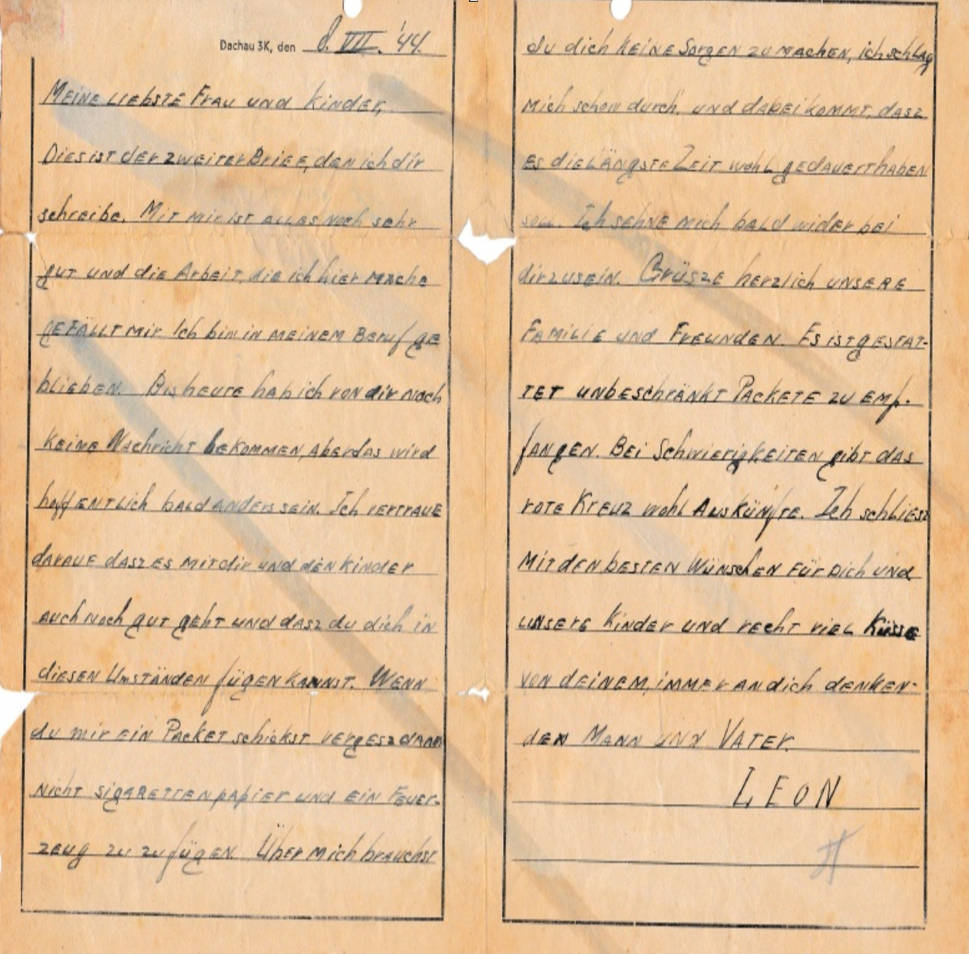 Dachau 3K, den 8. VII. '44.
Meine liebste Frau und Kinder,
Dies ist der zweiter Brief, den ich dir
schreibe. Mit mir ist alles noch sehr
gut und die Arbeit, die ich hier mache
gefällt mir. Ich bim in meinem Beruf ge
blieben. Bis heute hab ich von dir noch
keine Nachricht bekommen, aber das wird
hoffentlich bald anders sein. Ich vertraue
daraue dasz es mit dir und den Kinder
auch noch gut geht und dasz du dich in
diesen Umständen fügen kannst. Wenn
du mir ein Packet schickst vergesz dann
nicht sigarettenpapier und ein Feuer-
zeug zu zufügen. Über mich brauchst
du dich keine Sorgen zu machen, ich schlag
mich schon durch, und dabei kommt, dasz
es die längste Zeit wohl gedauert haben
soll. Ich sehne mich bald wider bei
dir zu sein. Grüsze herzlich unsere
Familie und Freunden. Es ist gestat-
tet unbeschränkt Packete zu emp-
fangen. Bei Schwierigkeiten gibt das
rote Kreuz wohl Auskünfte. Ich schliesz
mit den besten Wünschen für dich und
unsere Kinder und recht viel Küsse
von deinem, immer an dich denken-
den Mann und Vater.
LEON